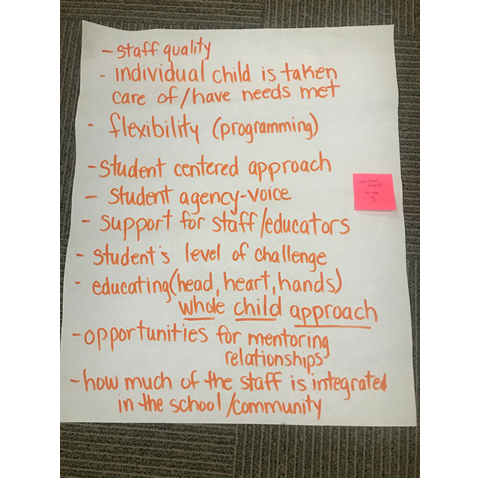 - Staff quality
- individual child is taken
care of/have needs met
- flexibility (programming)
- Student centered approach
- Student agency-voice
- Support for staff/educators
- Student's level of challenge
- educating (head, heart, hands)
whole child approach
- opportunities for mentoring
relationships
- how much of the staff is integrated
in the school/community